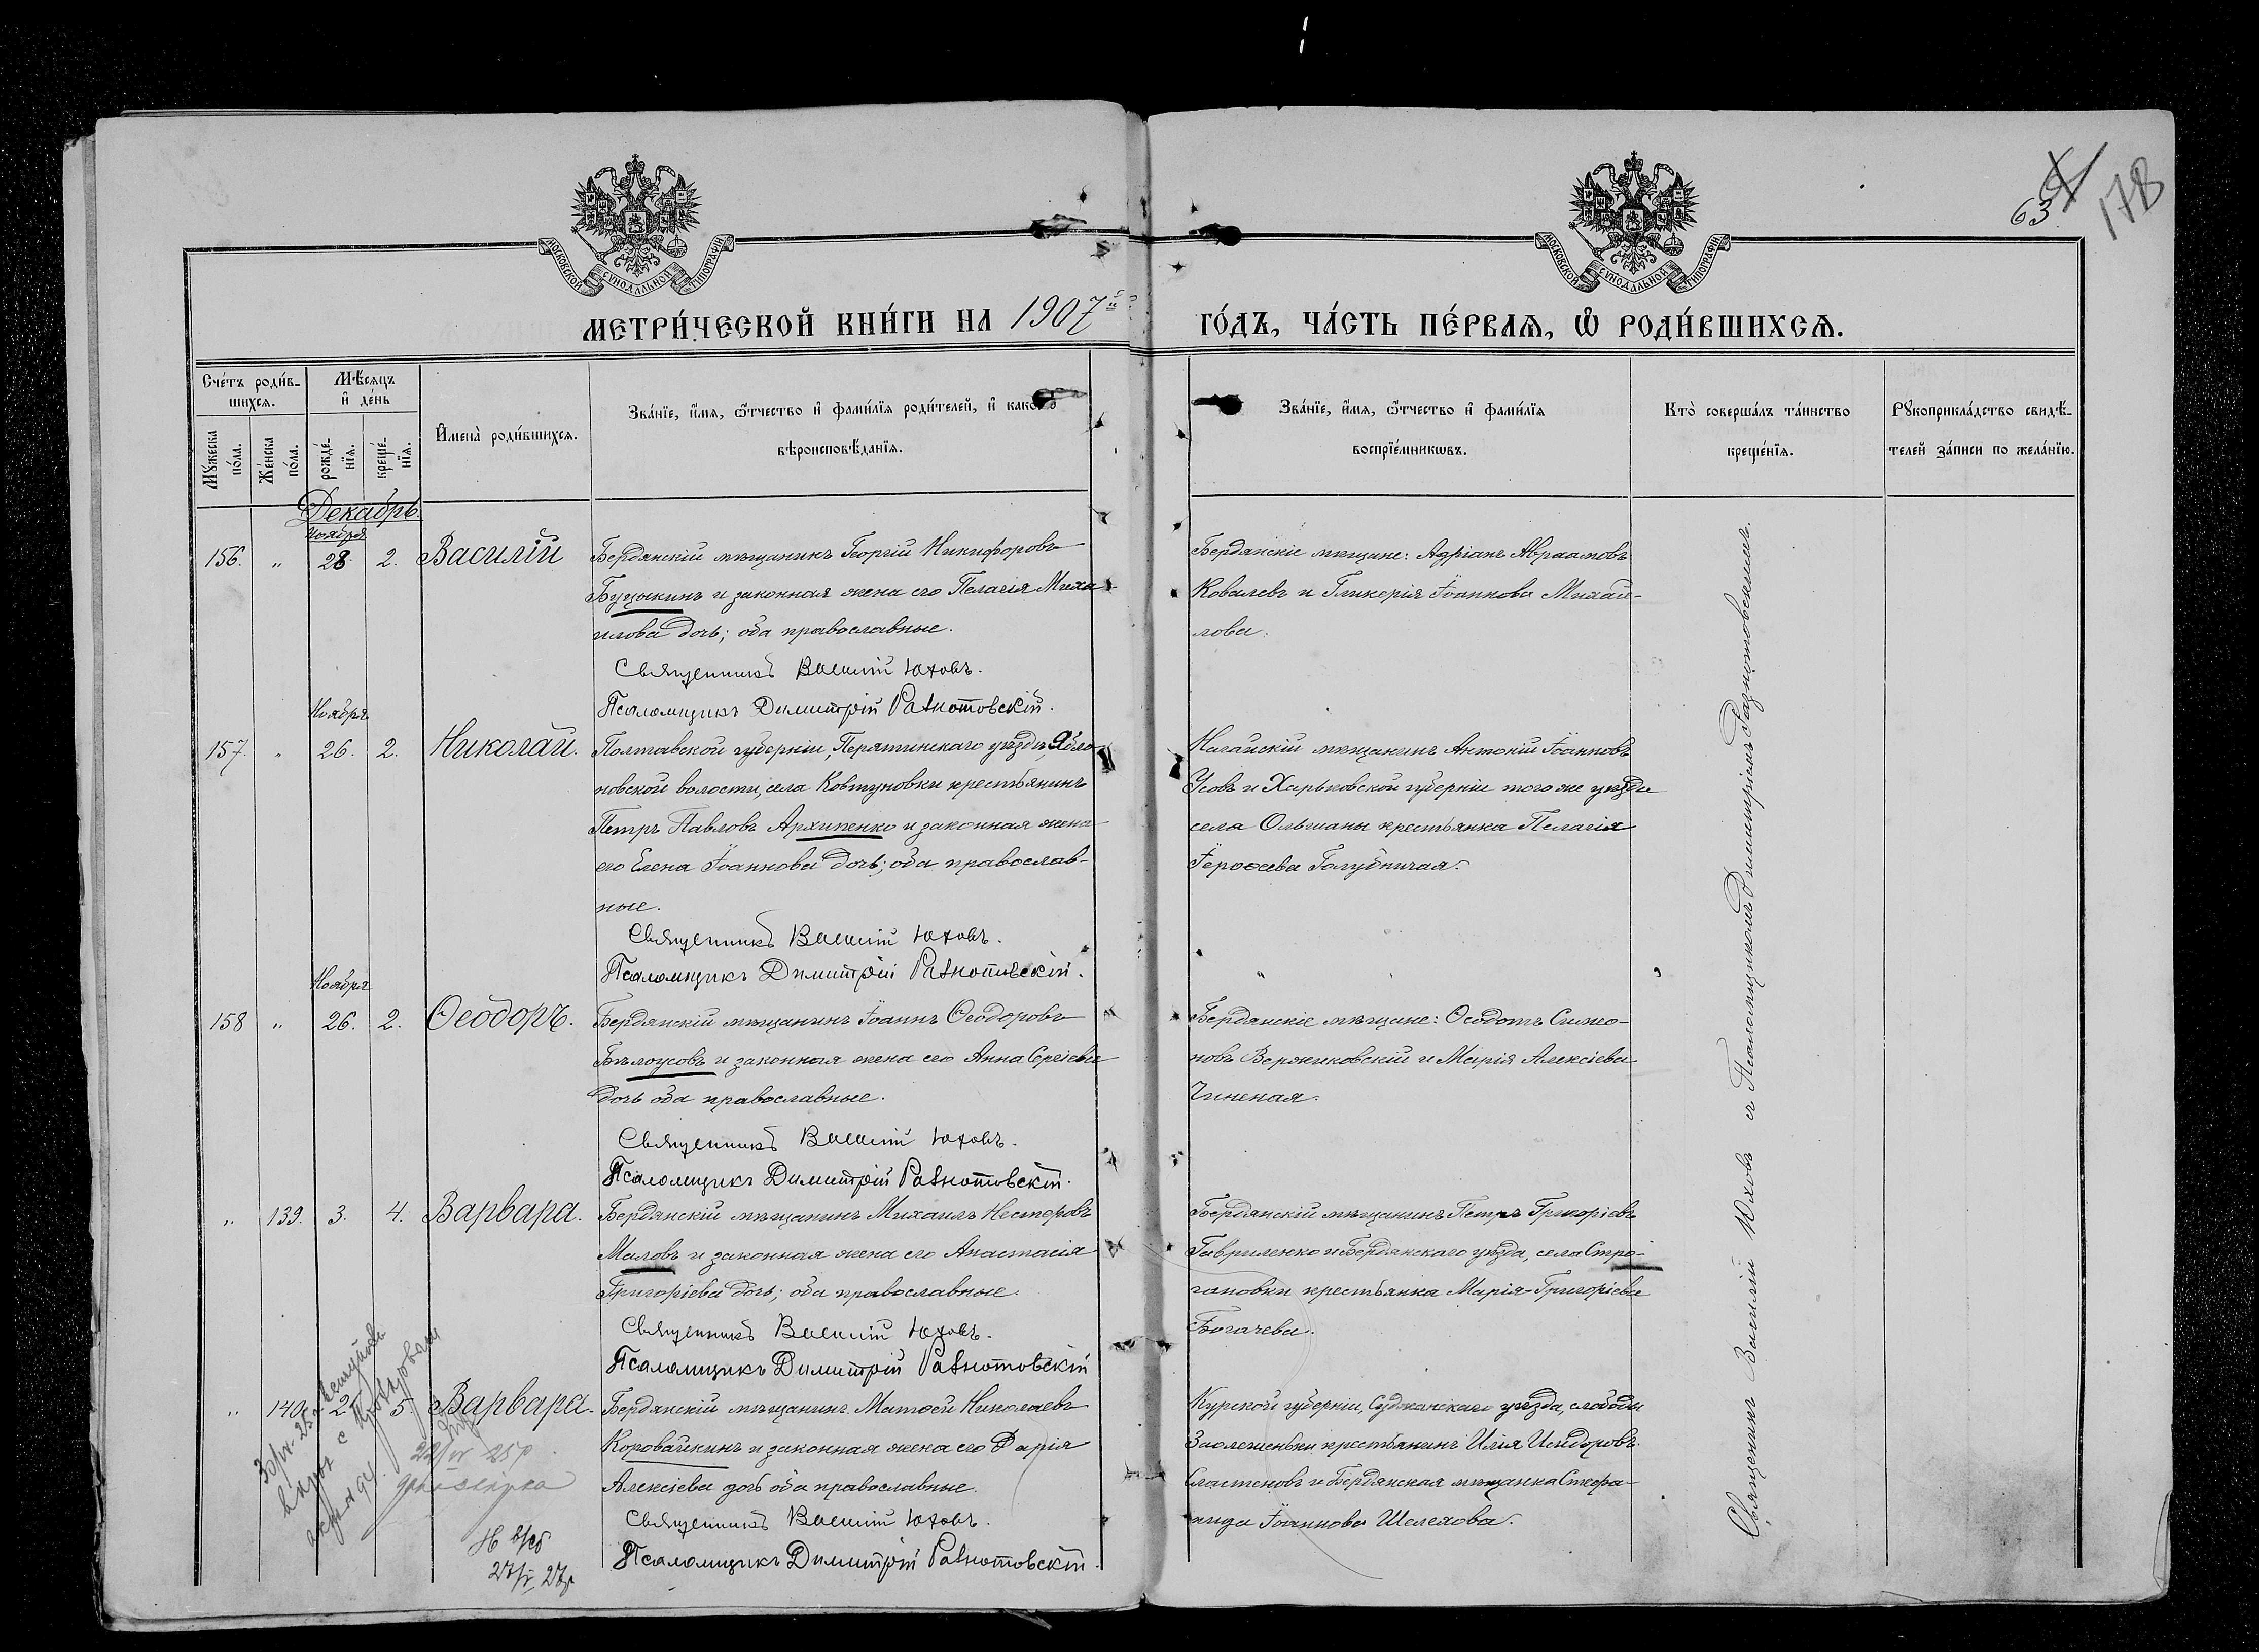 63
178
МОСКОВСКОЙ СѴНОДАЛЬНОЙ ТИПОГРАФІИ
МОСКОВСКОЙ СѴНОДАЛЬНОЙ ТИПОГРАФІИ
МЕТРИ́ЧЕСКОЙ КНИ́ГИ НА 1907й ГО́ДЪ, ЧА́СТЬ ПЕ́РВАѦ, Ѽ РОДИ́ВШИХСѦ.
Сче́тъ роди́в-
шихсѧ.
Мꙋжеска
по́ла.
Же́нска
по́ла.
Мѣ́сѧцъ
и҆ де́нь
рожде́-
нїѧ.
креще́-
нїѧ.
И҆мена̀ роди́вшихсѧ.
Зва́нїе, и҆́мѧ, ѻ҆́тчество и҆ фами́лїѧ роди́телей, и҆ како́гѡ
вѣроисповѣ́данїѧ.
Зва́нїе, и҆́мѧ, ѻ҆́тчество и҆ фами́лїѧ
воспрїе́мникѡвъ.
Кто̀ соверша́лъ та́инство
креще́нїѧ.
Рꙋкоприкла́дство свидѣ́-
телей за́писи по жела́нїю.
Декабрь.
Ноября
156. „ 28 2. Василій
Бердянскій мѣщанинъ Георгій Никифоровъ
Буцыкинъ и законная жена его Пелагія Миха-
илова дочь; оба православные.
Священникъ Василій Юховъ.
Псаломщикъ Димитрій Разнотовскій.
Бердянскіе мѣщане: Адріанъ Авраамовъ
Ковалевъ и Гликерія Іоаннова Михай-
лова.
Ноября
157. „ 26. 2. Николай.
Полтавской губерніи, Пирятинскаго уѣзда, Ябло-
новской волости, села Ковтуновки крестьянинъ
Петръ Павловъ Архипенко и законная жена
его Елена Іоаннова дочь; оба православ-
ные.
Священникъ Василій Юховъ.
Псаломщикъ Димитрій Разнотовскій.
Ногайскій мѣщанинъ Антоній Іоанновъ
Усовъ и Харьковской губерніи того же уѣзда
села Ольшаны крестьянка Пелагія
Іероѳеева Голубничая.
Ноября
158 „ 26. 2. Ѳеодоръ.
Бердянскій мѣщанинъ Іоаннъ Ѳеодоровъ
Бѣлоусовъ и законная жена его Анна Сергіева
дочь оба православные.
Священникъ Василій Юховъ.
Псаломщикъ Димитрій Разнотовскій.
Бердянскіе мѣщане: Ѳеодотъ Симео-
новъ Вержиковскій и Марія Алексіева
Чиненая.
„ 139. 3. 4. Варвара.
Бердянскій мѣщанинъ Михаилъ Несторовъ
Маловъ и законная жена его Анастасія
Григоріева дочь; оба православные.
Священникъ Василій Юховъ.
Псаломщикъ Димитрій Разнотовскій
Бердянскій мѣщанинъ Петръ Григоріевъ
Гавриленко и Бердянскаго уѣзда, села Стро-
гановки крестьянка Марія Григоріева
Богачева.
„ 140. 2. 5. Варвара.
Бердянскій мѣщанинъ Матѳей Николаевъ
Коровайкинъ и законная жена его Дарія
Алексіева дочь оба православные.
Священникъ Василій Юховъ.
Псаломщикъ Димитрій Разнотовскій.
Курской губерніи, Суджанскаго уѣзда, слободы
Заолешеньки крестьянинъ Илія Исидоровъ
Сластеновъ и Бердянская мѣщанка Стефа-
нида Іоаннова Шелехова.
Священникъ Василій Юховъ съ Псаломщикомъ Димитріемъ Разнотовскимъ.